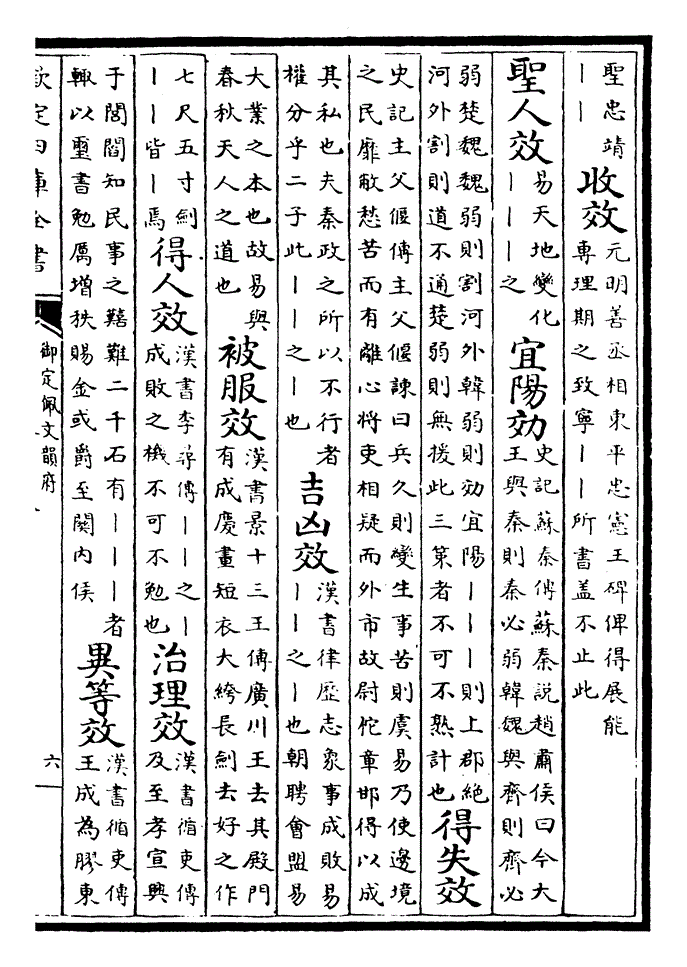 聖忠靖
｜｜
收效
元明善丞相東平忠憲王碑俾得展能
専理期之致寧｜｜所書盖不止此
聖人效
易天地變化
｜｜｜之
宜陽効
史記蘇秦傳蘇秦說趙肅侯曰今大
王與秦則秦必弱韓魏與齊則齊必
弱楚魏魏弱則割河外韓弱則効宜陽｜｜｜則上郡絶
河外割則道不通楚弱則無援此三策者不可不熟計也
得失效
史記主父偃傳主父偃諫曰兵久則變生事苦則虞易乃使邊境
之民靡敝愁苦而有離心將吏相疑而外市故尉佗章邯得以成
其私也夫秦政之所以不行者
權分乎二子此｜｜之｜也
吉凶效
漢書律歷志象事成敗易
｜｜之｜也朝聘會盟易
大業之本也故易與
春秋天人之道也
被服效
漢書景十三王傳廣川王去其殿門
有成慶畫短衣大絝長劍去好之作
七尺五寸劍
｜｜皆｜焉
得人效
漢書李尋傳｜｜之｜
成敗之機不可不勉也
治理效
漢書循吏傳
及至孝宣興
于閭閻知民事之囏難二千石有｜｜｜者
輒以璽書勉厲增秩賜金或爵至關内侯
異等效
漢書循吏傳
王成為膠東
欽定四庫全書
御定佩文韻府
六